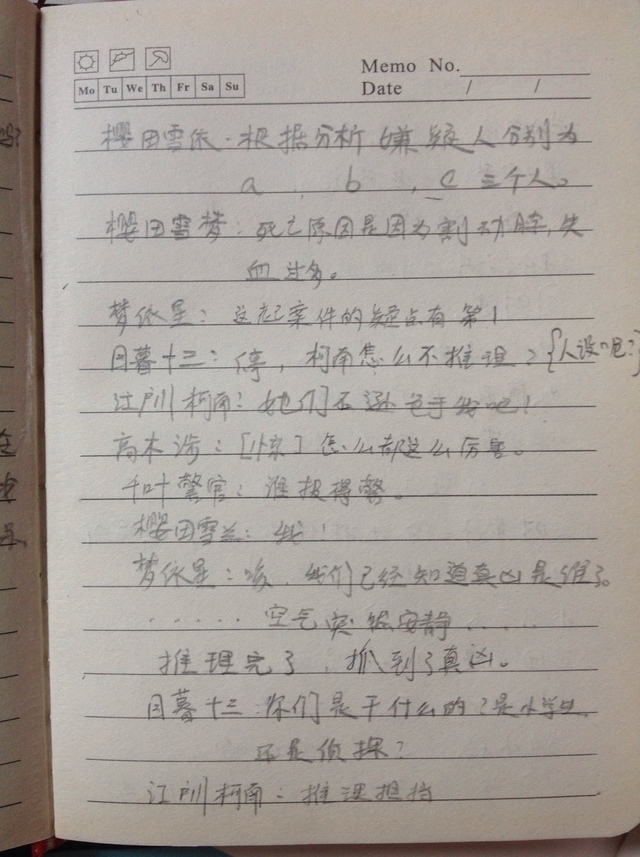 Memo No.
Mo Tu We Th Fr Sa Su
Date / /
樱田雪依:根据分析嫌疑人分别为
a , b , c 三个人。
樱田雪梦:死亡原因是因为割动脉,失
血过多。
梦依星:这起案件的疑点有第1
目暮十三:停,柯南怎么不推理?{人设呢?}
江户川柯南:她们不逊色于我吧!
高木涉:[小惊]怎么都这么厉害。
千叶警官:谁报得警。
樱田雪兰:我!
梦依星:咳,我们已经知道真凶是谁了。
.....空气突然安静.....
推理完了,抓到了真凶。
目暮十三:你们是干什么的?是小学生,
还是侦探?
江户川柯南:推理担当